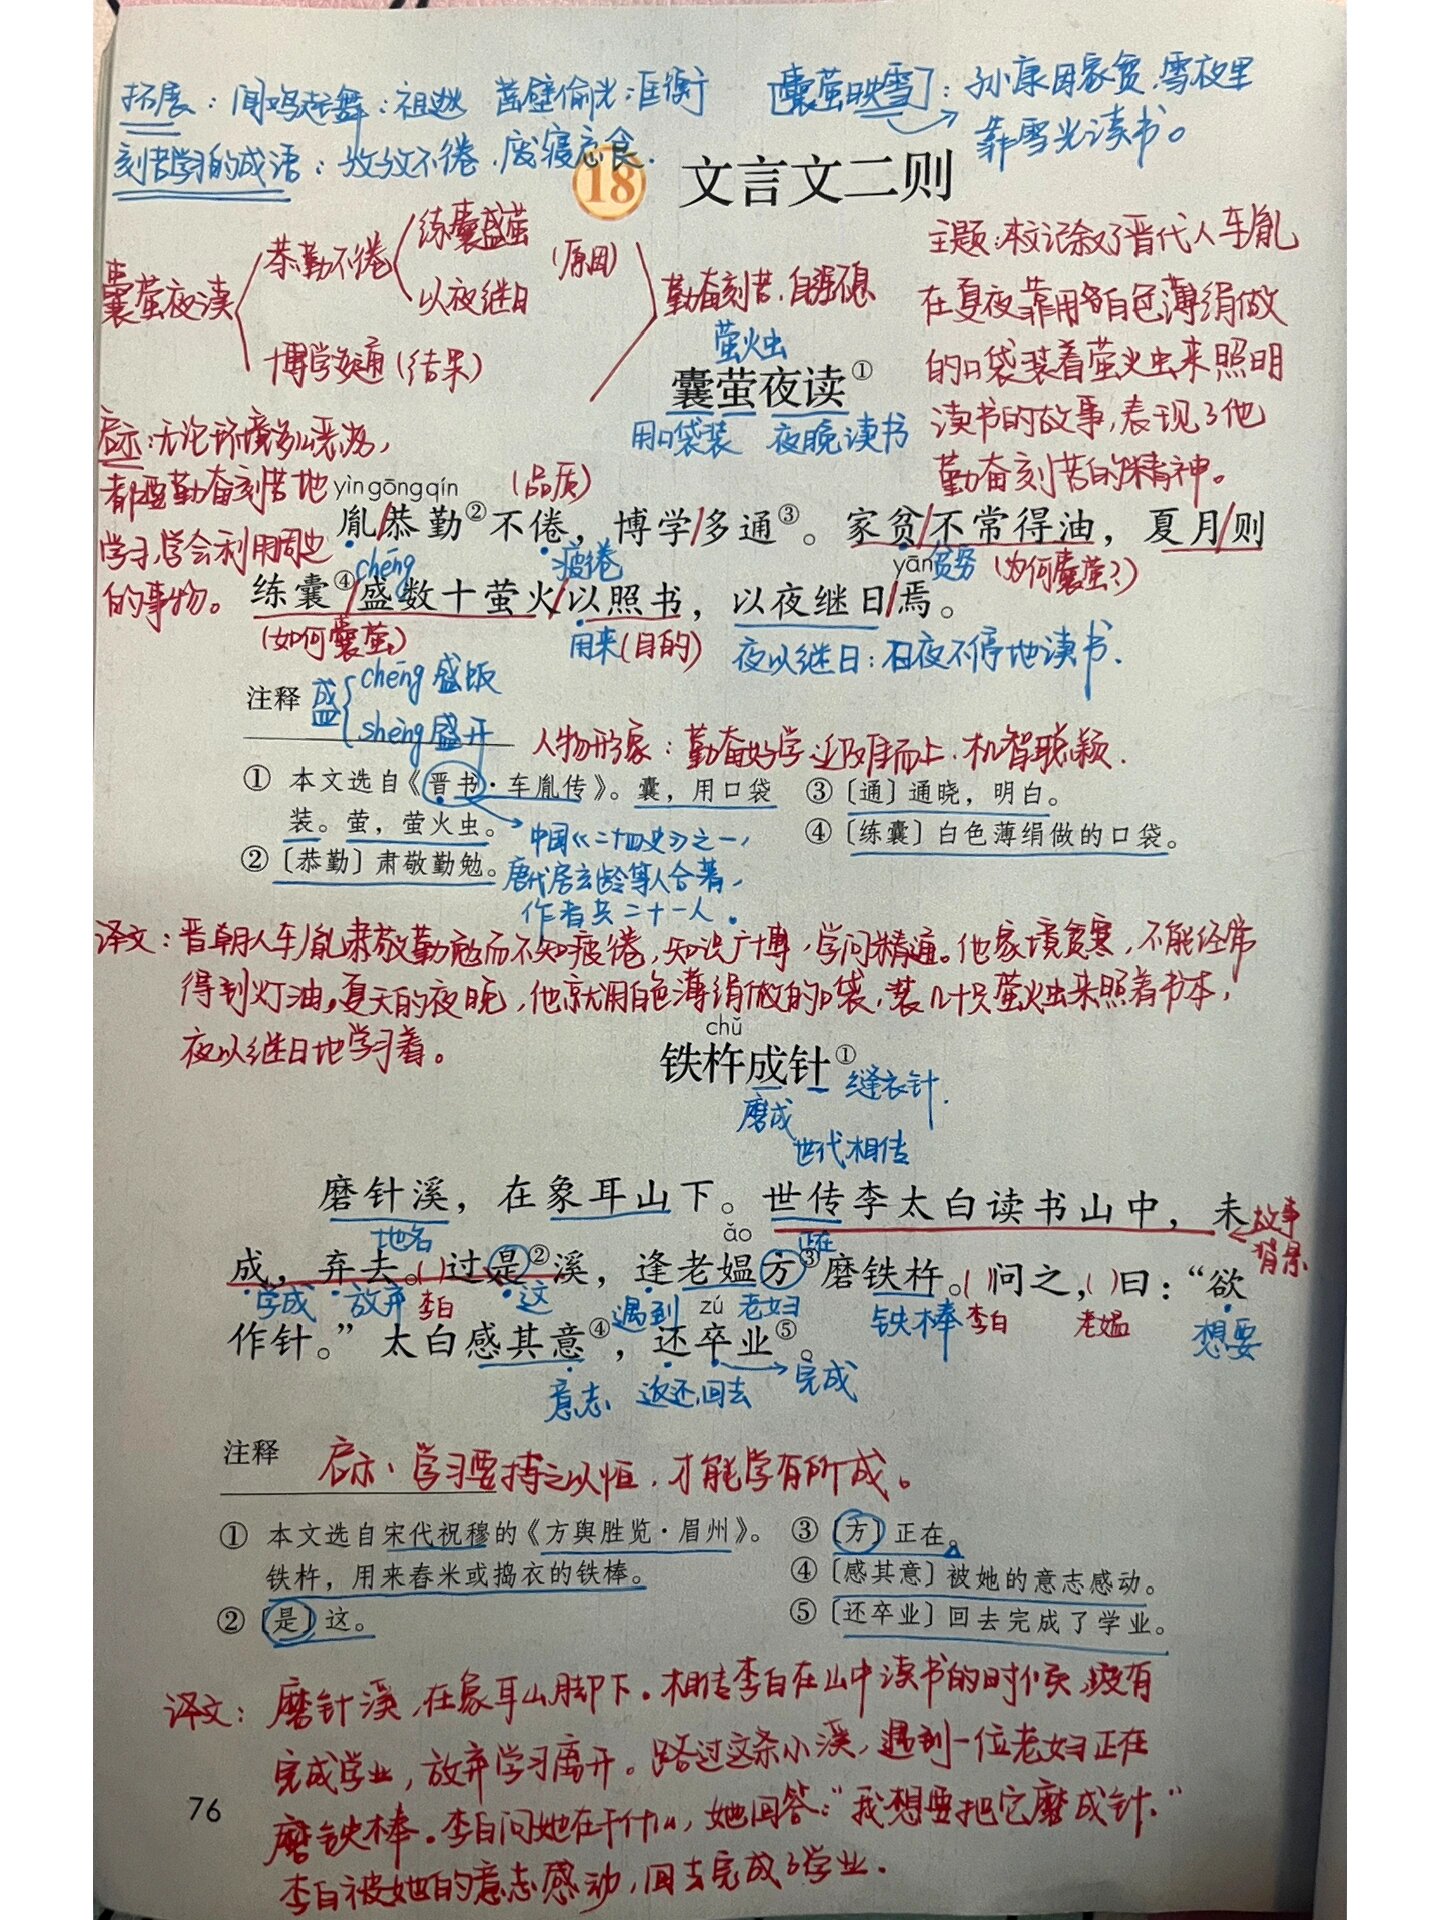 拓展：闻鸡起舞：祖逖 凿壁偷光：匡衡 [囊萤映雪]：孙康因家贫，雪夜里
靠雪光读书。
刻苦学习的成语：孜孜不倦、废寝忘食．
18 文言文二则
囊萤夜读
恭勤不倦
练囊盛萤
以夜继日
(原因)
博学多通(结果)
勤奋刻苦、自强不息
主题：本文记叙了晋代人车胤
在夏夜靠用白色薄绢做
的口袋装着萤火虫来照明
读书的故事，表现了他
勤奋刻苦的精神。
萤火虫
囊萤夜读①
用口袋装 夜晚读书
启示：无论环境多么恶劣，
都要勤奋刻苦地
学习，学会利用周边
的事物。
yìn gōng qín (品质)
胤/恭勤②不倦，博学/多通③。家贫/不常得油，夏月/则
chéng 疲倦 yān 贫穷 (为何囊萤？)
练囊④/盛数十萤火/以照书，以夜继日/焉。
(如何囊萤) 用来(目的) 夜以继日：日夜不停地读书．
注释 盛
chéng 盛饭
shèng 盛开
人物形象：勤奋好学、迎难而上、机智聪颖．
① 本文选自《晋书·车胤传》。囊，用口袋
装。萤，萤火虫。
② 〔恭勤〕肃敬勤勉。
③ 〔通〕通晓，明白。
④ 〔练囊〕白色薄绢做的口袋。
中国《二十四史》之一，
唐代房玄龄等人合著，
作者共二十一人．
译文：晋朝人车胤肃敬勤勉而不知疲倦，知识广博，学问精通。他家境贫寒，不能经常
得到灯油，夏天的夜晚，他就用白色薄绢做的口袋，装几十只萤火虫来照着书本，
夜以继日地学习着。
chǔ
铁杵成针①
磨成 缝衣针．
世代相传
磨针溪，在象耳山下。世传李太白读书山中，未
地名 ǎo 正在 故事
背景
成，弃去。( )过是②溪，逢老媪方③磨铁杵。( )问之，( )曰：“欲
学成 放弃 李白 这 遇到 zú 老妇 铁棒 李白 老媪 想要
作针。”太白感其意④，还卒业⑤。
意志 返还，回去 完成
注释
启示：学习要持之以恒，才能学有所成。
① 本文选自宋代祝穆的《方舆胜览·眉州》。
铁杵，用来舂米或捣衣的铁棒。
② 〔是〕这。
③ 〔方〕正在。
④ 〔感其意〕被她的意志感动。
⑤ 〔还卒业〕回去完成了学业。
译文：磨针溪，在象耳山脚下．相传李白在山中读书的时候，没有
完成学业，放弃学习离开。路过这条小溪，遇到一位老妇正在
磨铁棒．李白问她在干什么，她回答：“我想要把它磨成针．”
李白被她的意志感动，回去完成了学业．
76